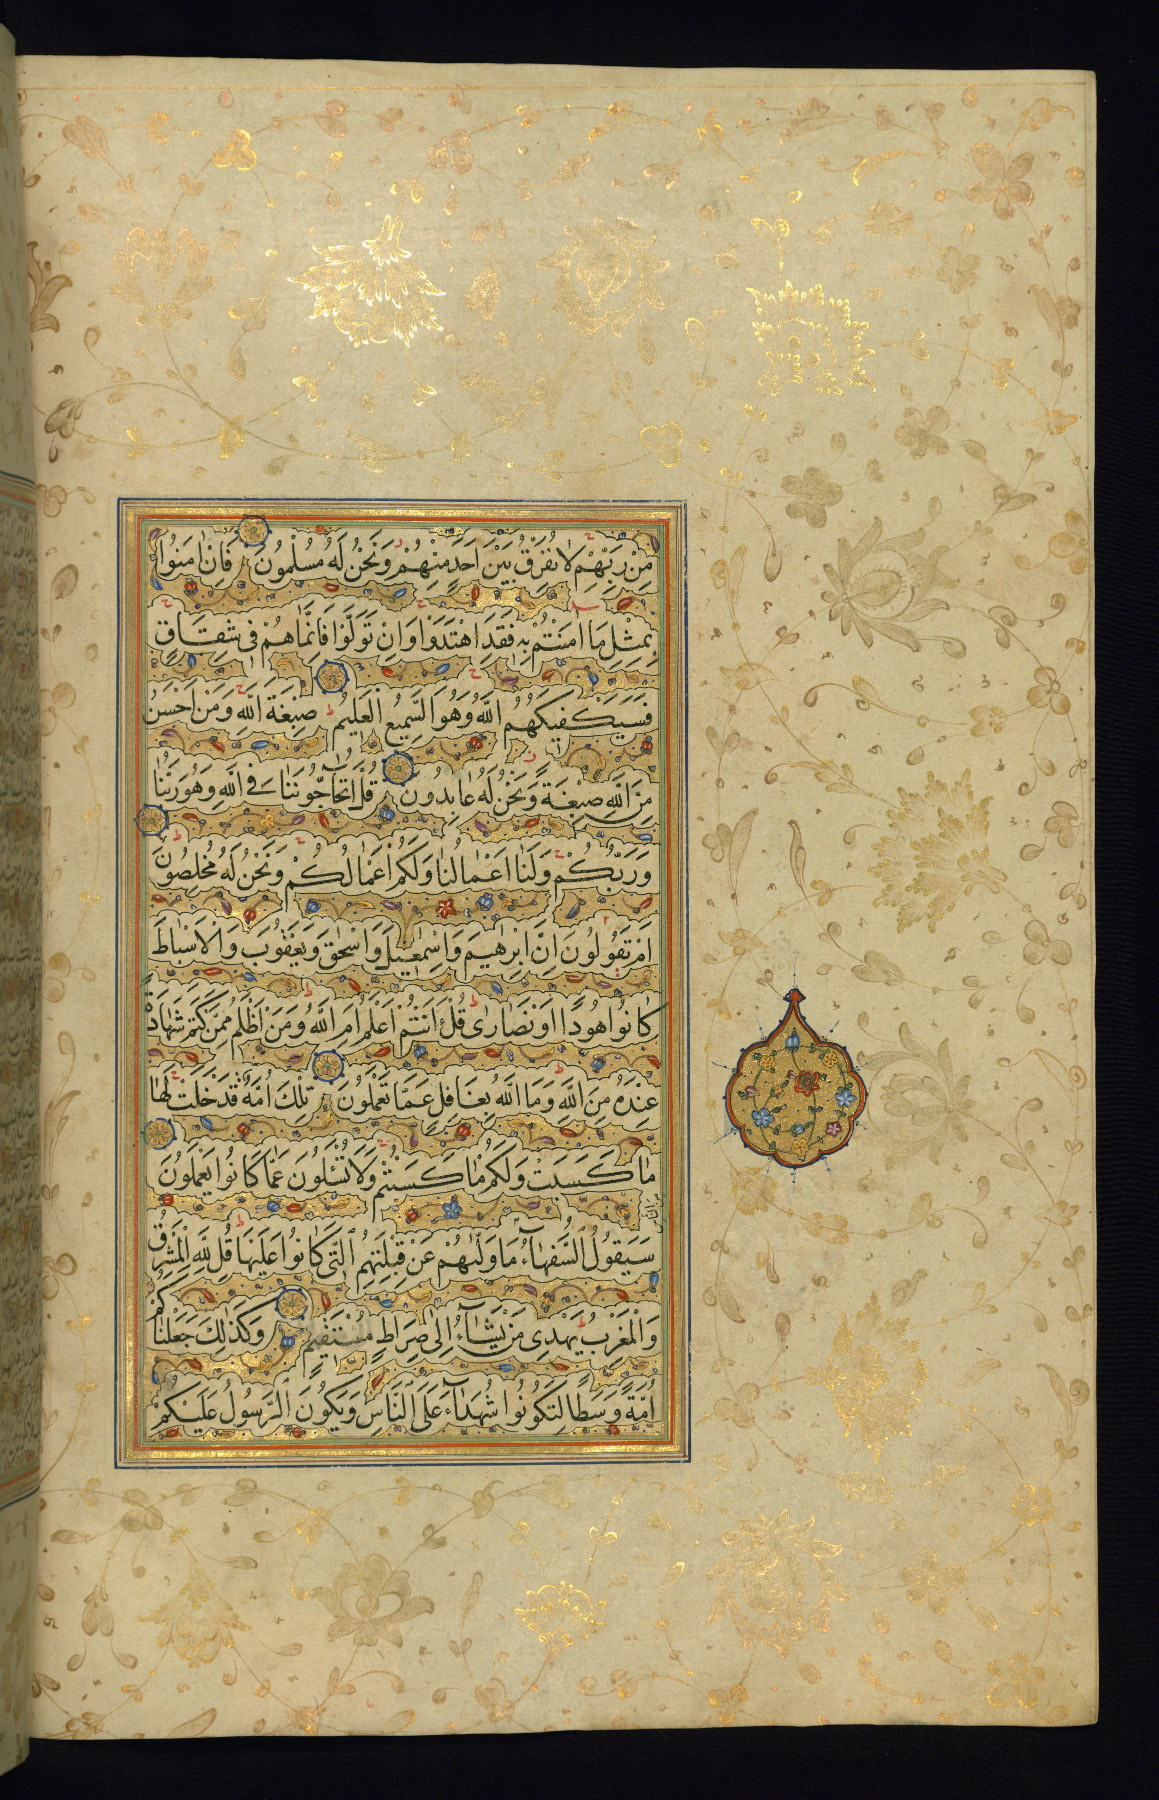 مِنْ رَبِّهِمْ لَا نُفَرِّقُ بَيْنَ اَحَدٍ مِنْهُمْ وَنَحْنُ لَهُ مُسْلِمُونَ فَاِنْ اٰمَنُوا
بِمِثْلِ مَا اٰمَنْتُمْ بِهِ فَقَدِ اهْتَدَوْا وَاِنْ تَوَلَّوْا فَاِنَّمَا هُمْ فِى شِقَاقٍ
فَسَيَكْفِيكَهُمُ اللّٰهُ وَهُوَ السَّمِيعُ الْعَلِيمُ صِبْغَةَ اللّٰهِ وَمَنْ اَحْسَنُ
مِنَ اللّٰهِ صِبْغَةً وَنَحْنُ لَهُ عَابِدُونَ قُلْ اَتُحَاجُّونَنَا فِى اللّٰهِ وَهُوَ رَبُّنَا
وَرَبُّكُمْ وَلَنَا اَعْمَالُنَا وَلَكُمْ اَعْمَالُكُمْ وَنَحْنُ لَهُ مُخْلِصُونَ
اَمْ تَقُولُونَ اِنَّ اِبْرٰهِيمَ وَاِسْمٰعِيلَ وَاِسْحٰقَ وَيَعْقُوبَ وَالْاَسْبَاطَ
كَانُوا هُودًا اَوْ نَصَارٰى قُلْ ءَاَنْتُمْ اَعْلَمُ اَمِ اللّٰهُ وَمَنْ اَظْلَمُ مِمَّنْ كَتَمَ شَهَادَةً
عِنْدَهُ مِنَ اللّٰهِ وَمَا اللّٰهُ بِغَافِلٍ عَمَّا تَعْمَلُونَ تِلْكَ اُمَّةٌ قَدْ خَلَتْ لَهَا
مَا كَسَبَتْ وَلَكُمْ مَا كَسَبْتُمْ وَلَا تُسْئَلُونَ عَمَّا كَانُوا يَعْمَلُونَ
سَيَقُولُ السُّفَهَاءُ مِنَ النَّاسِ مَا وَلّٰىهُمْ عَنْ قِبْلَتِهِمُ الَّتِى كَانُوا عَلَيْهَا قُلْ لِلّٰهِ الْمَشْرِقُ
وَالْمَغْرِبُ يَهْدِى مَنْ يَشَاءُ اِلٰى صِرَاطٍ مُسْتَقِيمٍ وَكَذٰلِكَ جَعَلْنَاكُمْ
اُمَّةً وَسَطًا لِتَكُونُوا شُهَدَاءَ عَلَى النَّاسِ وَيَكُونَ الرَّسُولُ عَلَيْكُمْ